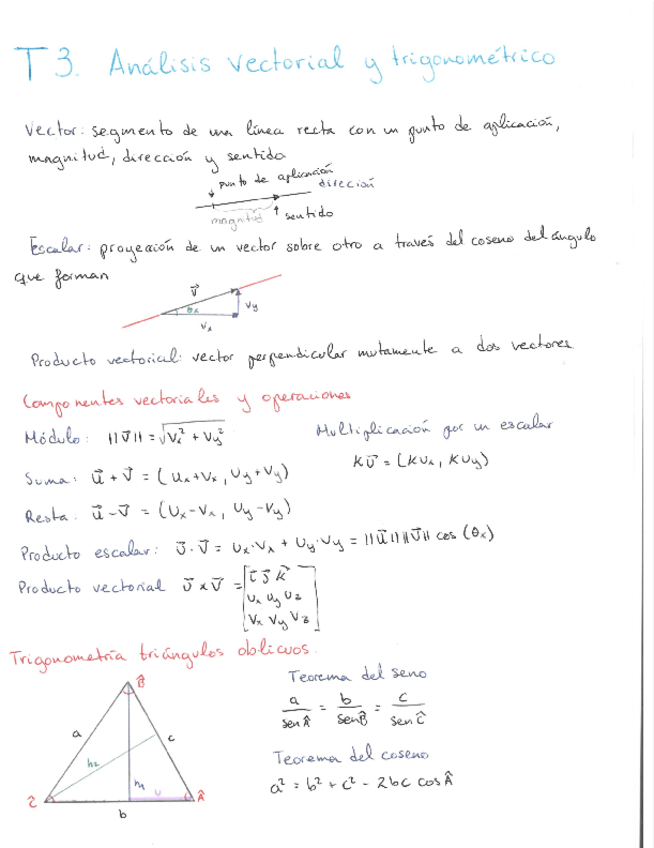 T3. Análisis vectorial y trigonométrico
Vector: segmento de una línea recta con un punto de aplicación,
magnitud, dirección y sentido
punto de aplicación
direción
magnitud
sentido
Escalar: proyeción de un vector sobre otro a través del coseno del ángulo
que forman
v⃗
θx
Vy
Vx
Producto vectorial: vector perpendicular mutamente a dos vectores
Componentes vectoriales y operaciones
Módulo: ||v⃗|| = √(Vx² + Vy²)
Multiplicación por un escalar
Suma: u⃗ + v⃗ = (Ux+Vx, Uy+Vy)
Ku⃗ = (KUx, KUy)
Resta: u⃗ - v⃗ = (Ux-Vx, Uy-Vy)
Producto escalar: u⃗·v⃗ = Ux·Vx + Uy·Vy = ||u⃗|| ||v⃗|| cos (θx)
Producto vectorial u⃗ x v⃗ = [i⃗ j⃗ k⃗
Ux Uy Uz
Vx Vy Vz]
Trigonometría triángulos oblicuos.
B̂
Teorema del seno
a
c
a/sen Â = b/sen B̂ = c/sen Ĉ
h₂
Teorema del coseno
h₁
u
a² = b² + c² - 2bc cos Â
Ĉ
Â
b